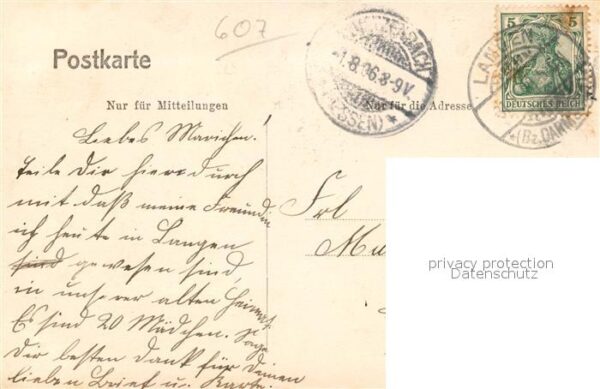 607
Postkarte
5 5
DEUTSCHES REICH
LANGEN
*(Bz. DARM
1.8.06.8-9V
(HESSEN) *
Nur für Mitteilungen
Nur für die Adresse
Liebes Mariechen!
Teile Dir hierdurch
mit daß meine Freundin
ich heute in Langen
sind gewesen sind,
in unserer alten Heimat.
Es sind 20 Mädchen. Sage
Dir besten Dank für Deinen
lieben Brief u. Karte.
Frl
Mu
privacy protection
Datenschutz